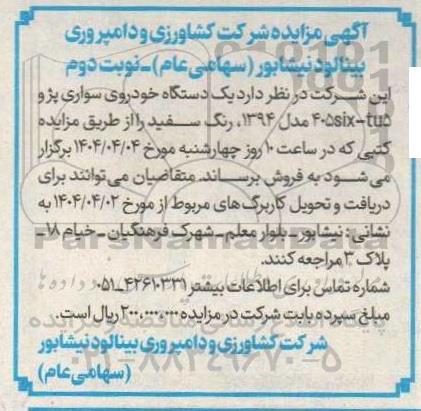 آگهی مزایده شرکت کشاورزی و دامپروری
بینالود نیشابور (سهامی عام) - نوبت دوم
این شرکت در نظر دارد یک دستگاه خودروی سواری پژو
۴۰۵six-tu۵ مدل ۱۳۹۴، رنگ سفید را از طریق مزایده
کتبی که در ساعت ۱۰ روز چهارشنبه مورخ ۱۴۰۴/۰۴/۰۴ برگزار
می شود به فروش برساند. متقاضیان می توانند برای
دریافت و تحویل کاربرگ های مربوط از مورخ ۱۴۰۴/۰۴/۰۲ به
نشانی: نیشابور - بلوار معلم - شهرک فرهنگیان - خیام ۱۸ -
پلاک ۳ مراجعه کنند.
شماره تماس برای اطلاعات بیشتر ۴۲۶۱۰۳۳۱-۰۵۱
مبلغ سپرده بابت شرکت در مزایده ۲۰۰,۰۰۰,۰۰۰ ریال است.
شرکت کشاورزی و دامپروری بینالود نیشابور
(سهامی عام)
ParsNamadData
پایگاه اطلاع رسانی مناقصه و مزایده
۰۲۱-۸۸۳۴۹۶۷۰-۵